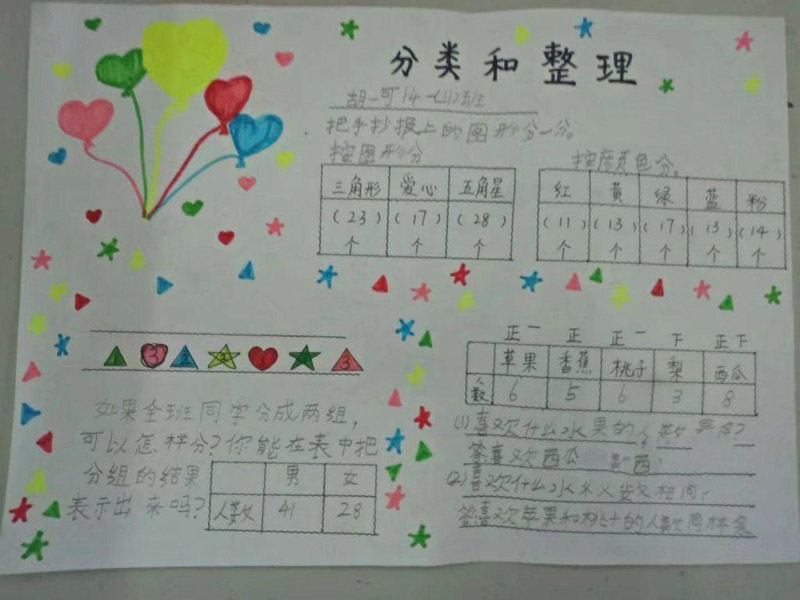 分类和整理
胡一可 (4-11)班
把手抄报上的图形分一分。
按图形分
三角形 爱心 五角星
(23)个 (17)个 (28)个
按颜色分。
红 黄 绿 蓝 粉
(11)个 (13)个 (17)个 (13)个 (14)个
3 2 4 1 3
如果全班同学分成两组,
可以怎样分?你能在表中把
分组的结果
表示出来吗?
男 女
人数 41 28
正一 正 正一 下 正下
苹果 香蕉 桃子 梨 西瓜
人数 6 5 6 3 8
(1)喜欢什么水果的人数最多?
答喜欢西瓜
(2)喜欢什么水果人数相同?
答喜欢苹果和桃子的人数同样多